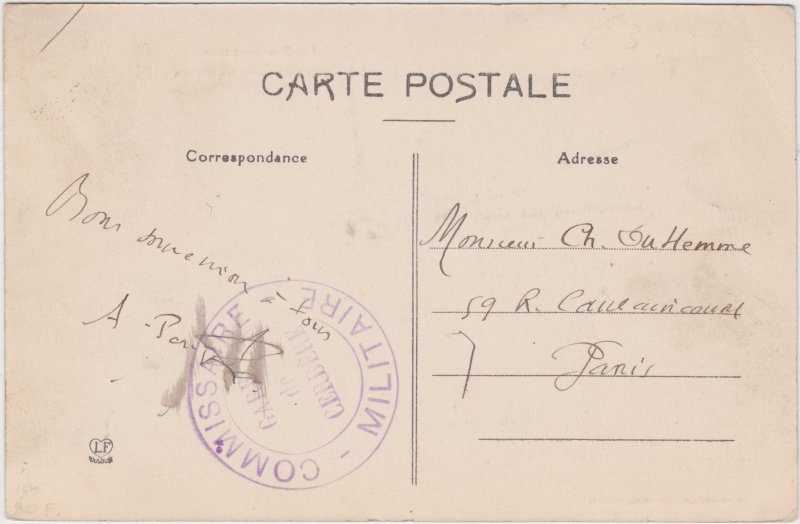 CARTE POSTALE
Correspondance
Bons souvenirs à tous
A.
COMMISSAIRE MILITAIRE
GARE
de
CERBÈRE
LF
TOULOUSE
Adresse
Monsieur Ch. DuHemme
59 R. Caulaincourt
Paris
80 F.